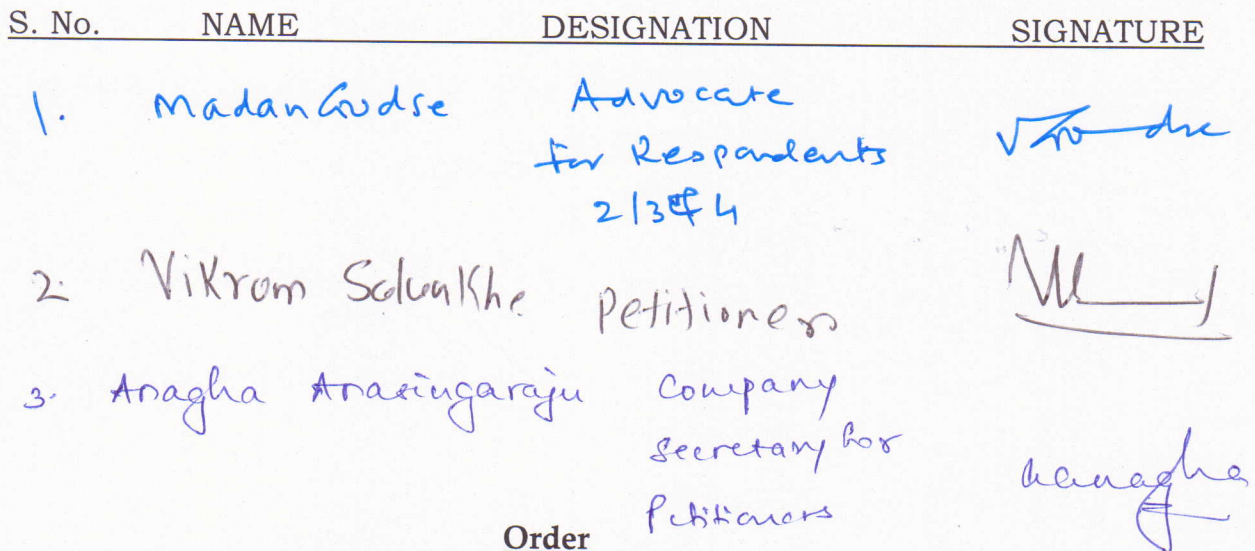 S. No. NAME DESIGNATION SIGNATURE
1. Madan Godse Advocate
for Respondents
2/3 & 4
2. Vikrom Salunkhe Petitioner
3. Anagha Anasingaraju Company
Secretary for
Petitioners
anagha
Order